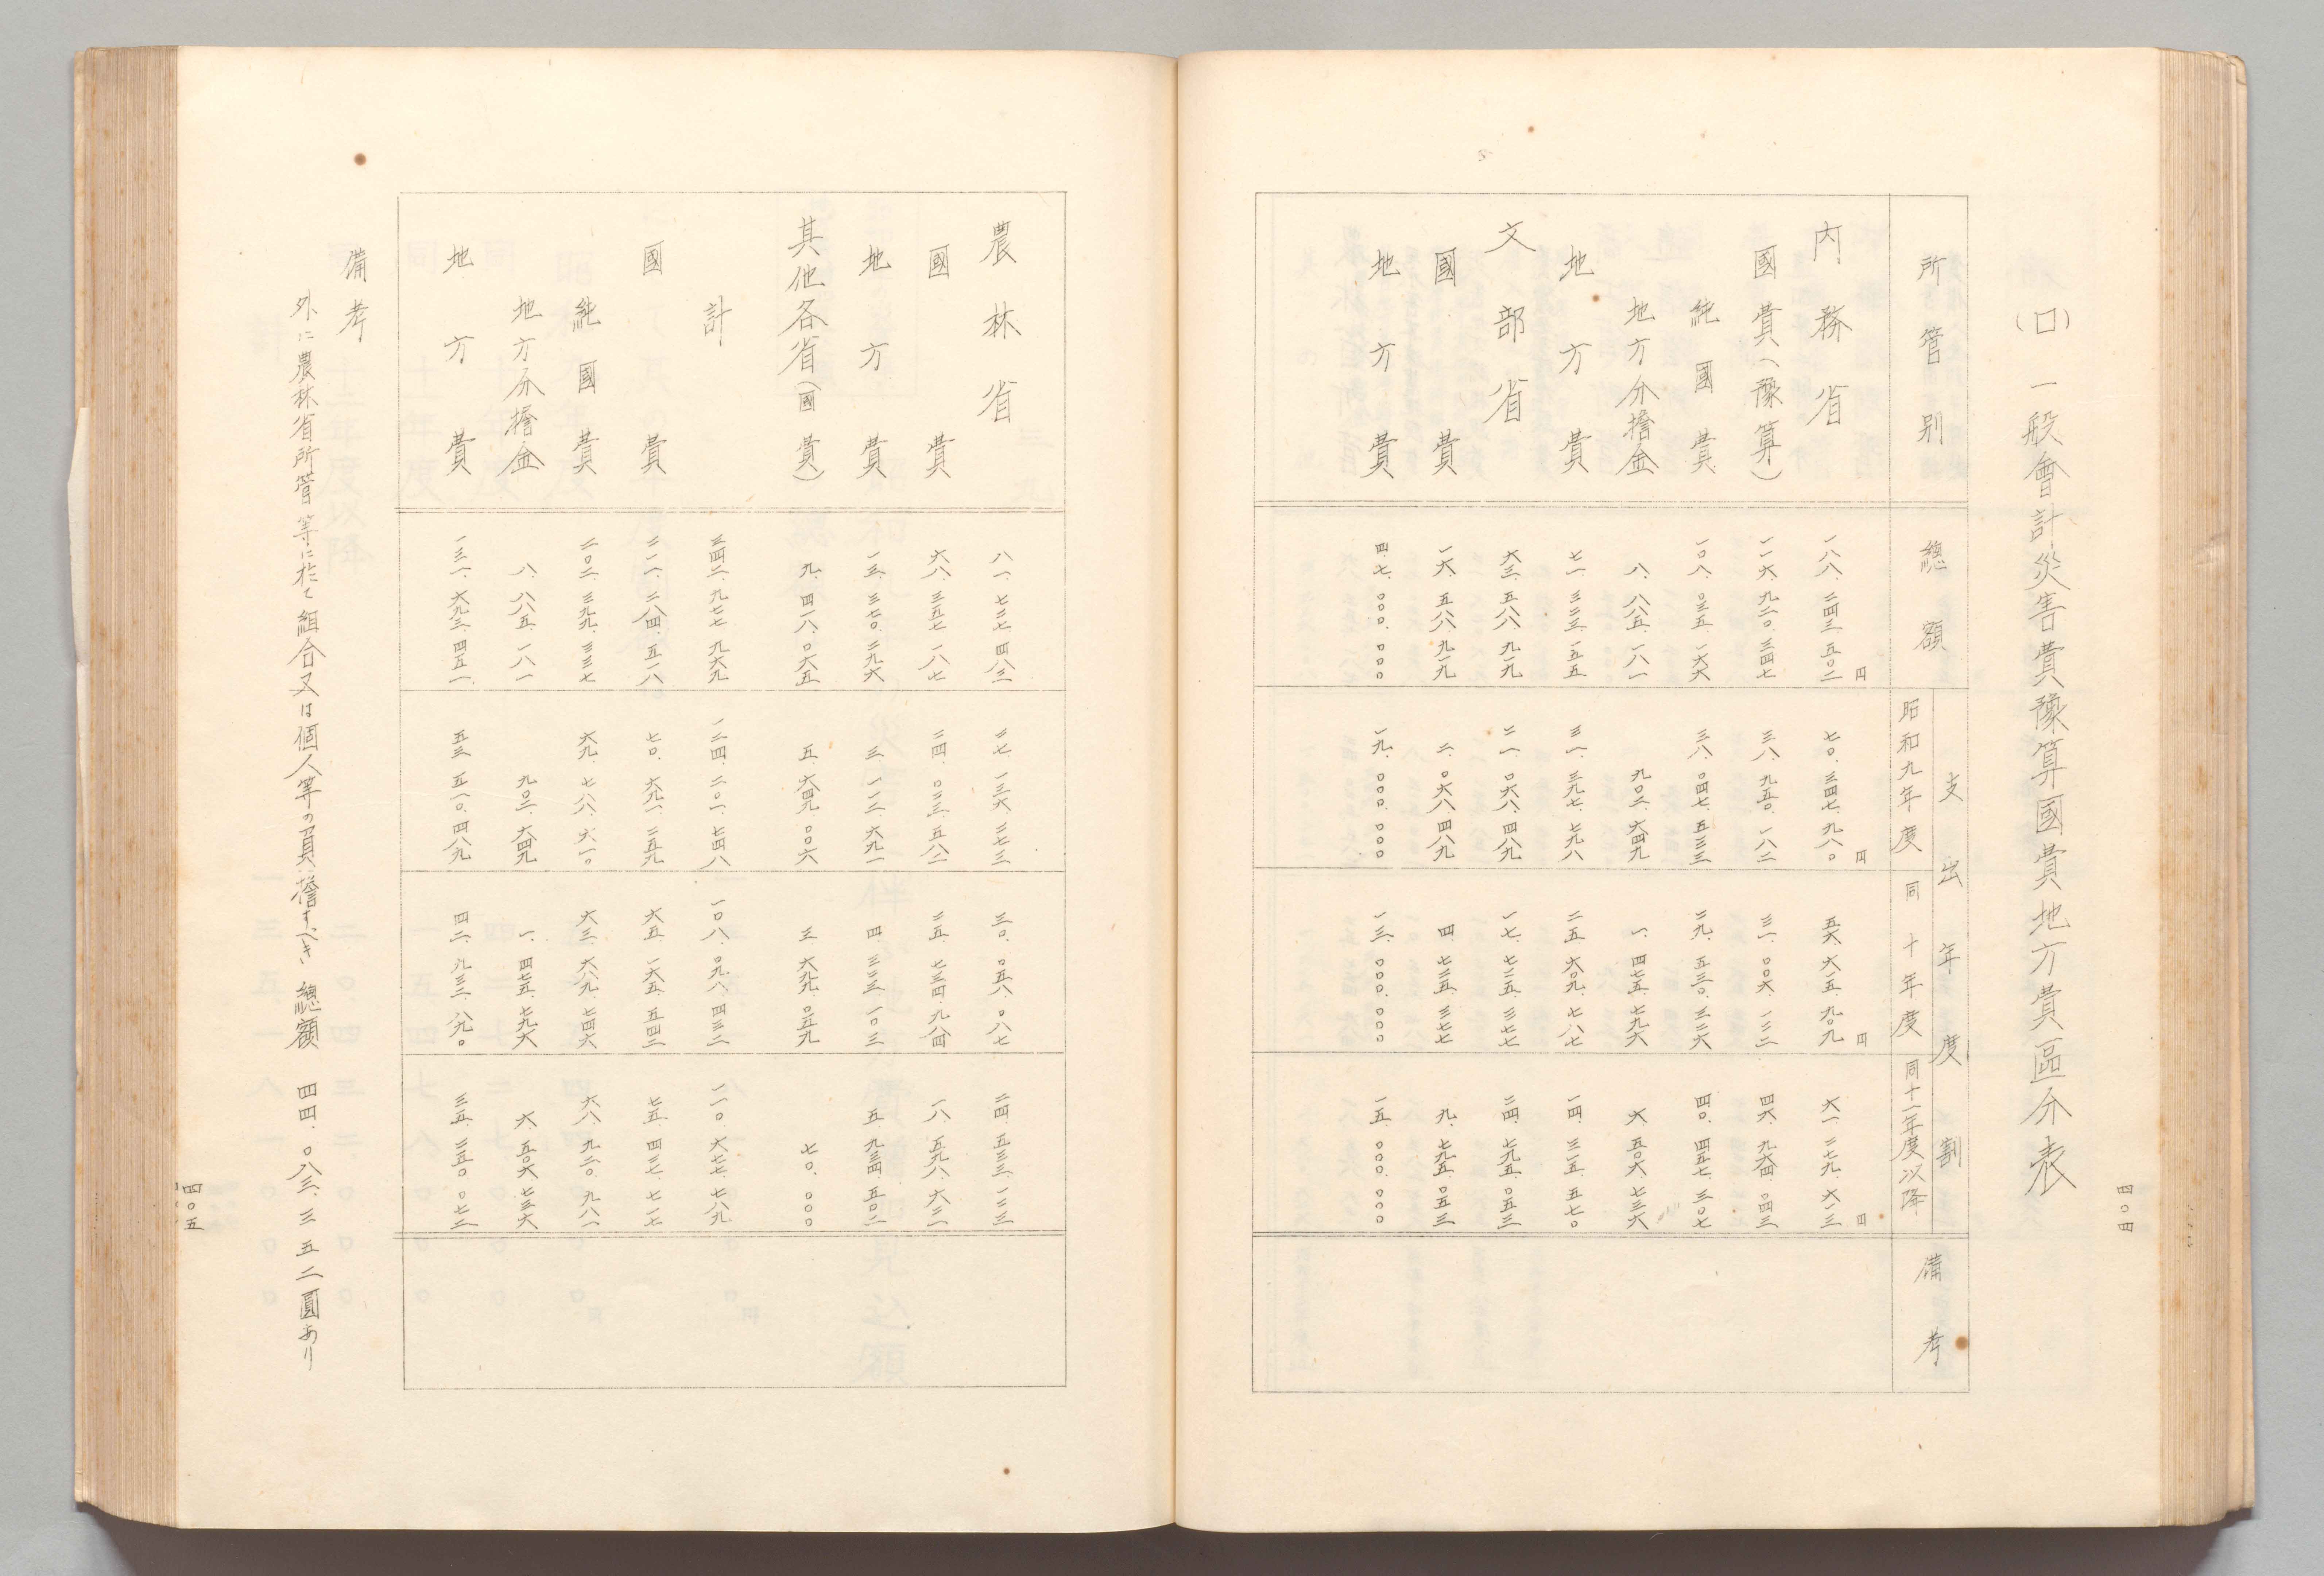 四〇四
(ロ) 一般會計災害費豫算國費地方費區分表
所管別 總額 支出年度割 備考
昭和九年度 同十年度 同十一年度以降
円 円 円 円
内務省 一八八.二四三.五〇二 七〇.三四七.九八〇 五六.六一五.九〇九 六一.二七九.六一三
國費(豫算) 一一六.九二〇.三四七 三八.九五〇.一八二 三一.〇〇六.一二二 四六.九六四.〇四三
純國費 一〇八.〇三五.一六六 三八.〇四七.五三三 二九.五三〇.三二六 四〇.四五七.三〇七
地方分擔金 八.八八五.一八一 九〇二.六四九 一.四七五.七九六 六.五〇六.七三六
地方費 七一.三二三.一五五 三一.三九七.七九八 二五.六〇九.七八七 一四.三一五.五七〇
文部省 六三.五八八.九一九 二一.〇六八.四八九 一七.七二五.三七七 二四.七九五.〇五三
國費 一六.五八八.九一九 二.〇六八.四八九 四.七二五.三七七 九.七九五.〇五三
地方費 四七.〇〇〇.〇〇〇 一九.〇〇〇.〇〇〇 一三.〇〇〇.〇〇〇 一五.〇〇〇.〇〇〇
農林省 八一.七二七.四八三 二七.一三六.二七三 三〇.〇五八.〇八七 二四.五三三.一二三
國費 六八.三五七.一八七 二四.〇二三.五八二 二五.七三四.九八四 一八.五九八.六二一
地方費 一三.三七〇.二九六 三.一一二.六九一 四.三二三.一〇三 五.九三四.五〇二
其他各省(國費) 九.四一八.〇六五 五.六四九.〇〇六 三.六九九.〇五九 七〇.〇〇〇
計 三四二.九七七.九六九 一二四.二〇一.七四八 一〇八.〇九八.四三二 一一〇.六七七.七八九
國費 二一一.二八四.五一八 七〇.六九一.二五九 六五.一六五.五四二 七五.四二七.七一七
純國費 二〇二.三九九.三三七 六九.七八八.六一〇 六三.六八九.七四六 六八.九二〇.九八一
地方分擔金 八.八八五.一八一 九〇二.六四九 一.四七五.七九六 六.五〇六.七三六
地方費 一三一.六九三.四五一 五三.五一〇.四八九 四二.九三二.八九〇 三五.二五〇.〇七二
備考
外に農林省所管等に於て組合又は個人等の負擔すべき總額 四四.〇八三.三五二圓あり
四〇五